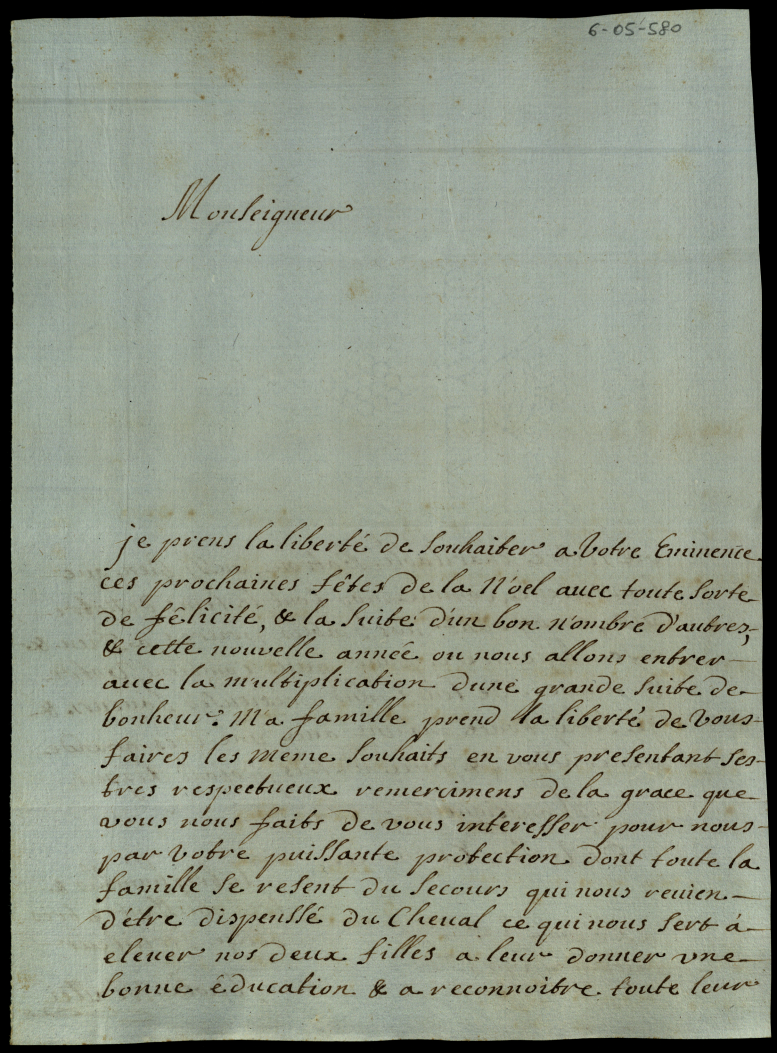 6-05-580
Monseigneur
je prens la liberté de souhaiter a Votre Eminence
ces prochaines fêtes de la Nöel avec toute sorte
de félicité, & la suite d'un bon nombre d'autres,
& cette nouvelle année ou nous allons entrer
avec la multiplication d'une grande suite de
bonheur. Ma famille prend la liberté de vous
faires les meme souhaits en vous presentant ses
tres respectueux remercimens de la grace que
vous nous faits de vous interesser pour nous
par votre puissante protection dont toute la
famille se resent du secours qui nous revien
d'étre dispenssé du Cheval ce qui nous sert á
elever nos deux filles a leur donner une
bonne éducation & a reconnoitre toute leur